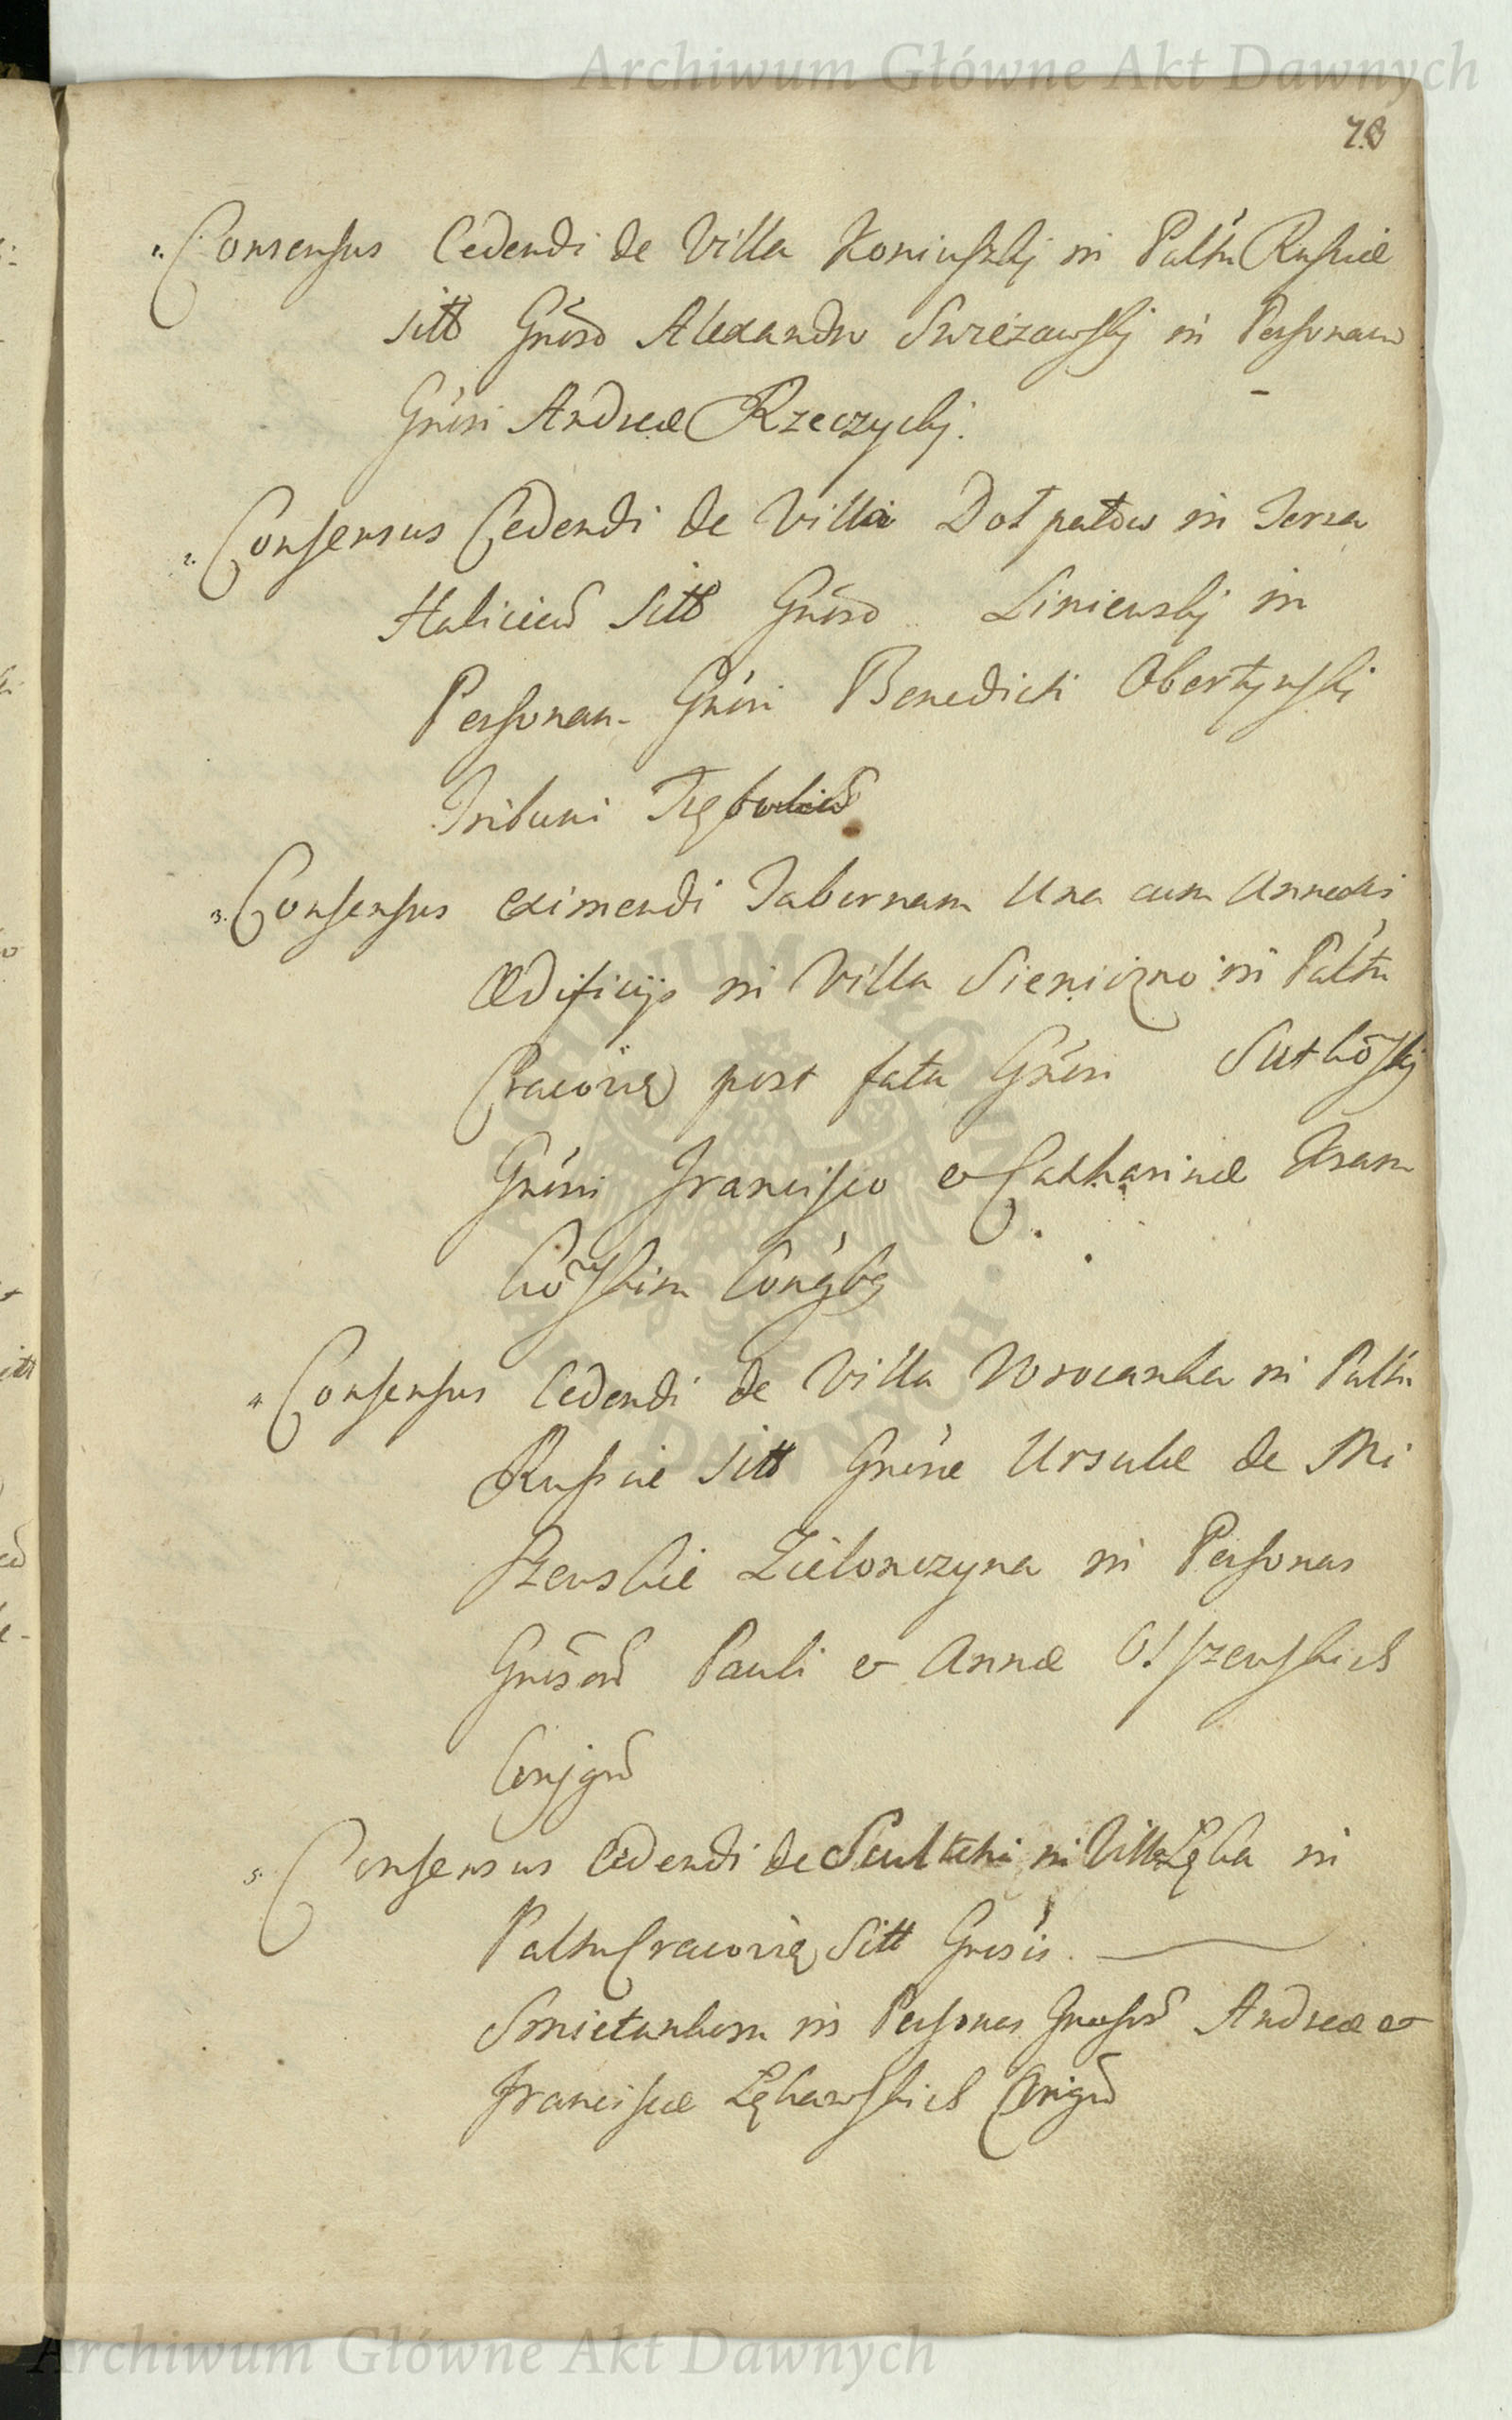 Archiwum Główne Akt Dawnych
73
1. Consensus Cedendi de Villa Koniuszki in Paltu Russiæ
sitt Gnoso Alexandro Swieżawski in Personam
Gnosi Andreæ Rzeczycki.
2. Consensus Cedendi de Villa Dołpatow in Terra
Halicien sitt Gnoso Liniewski in
Personam Gnosi Benedicti Obertynski
Tribuni
3. Consensus eximendi Tabernam Una cum Annexis
Ædificijs in Villa Sieniczno in Paltu
Cracovię post fata Gnosi
Gnosis Francisco et Catharinæ Kram
kowskim Conjgbg
4 Consensus Cedendi de Villa Worocanka in Paltu
Russiæ sitt Gnosæ Ursulæ de Mi
szewskie Zielonczyna in Personas
Gnosor Pauli et Annæ Olszewskich
Conjgu
5. Consensus Cedendi de Scultetia in Villa Łęka in
Paltu Cracovię sitt Gnosis
Smietankom in Personas Gnosor Andreæ et
Franciscæ Łękawskich Conjgu
Archiwum Główne Akt Dawnych